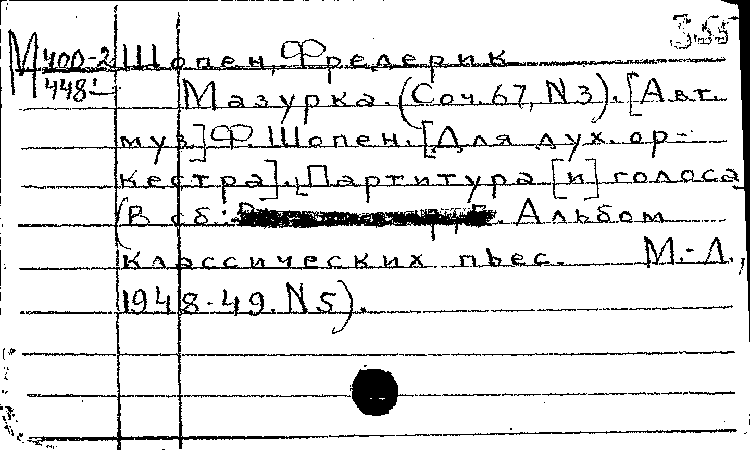 3.55
М 400-2 Шопен, Фредерик
448
Мазурка. (Соч. 67, N 3). [Авт.
муз] Ф. Шопен. [Для дух. ор-
кестра]. Партитура [и] голоса
(В сб.: . Альбом
классических пьес. М.-Л.,
1948-49. N 5).